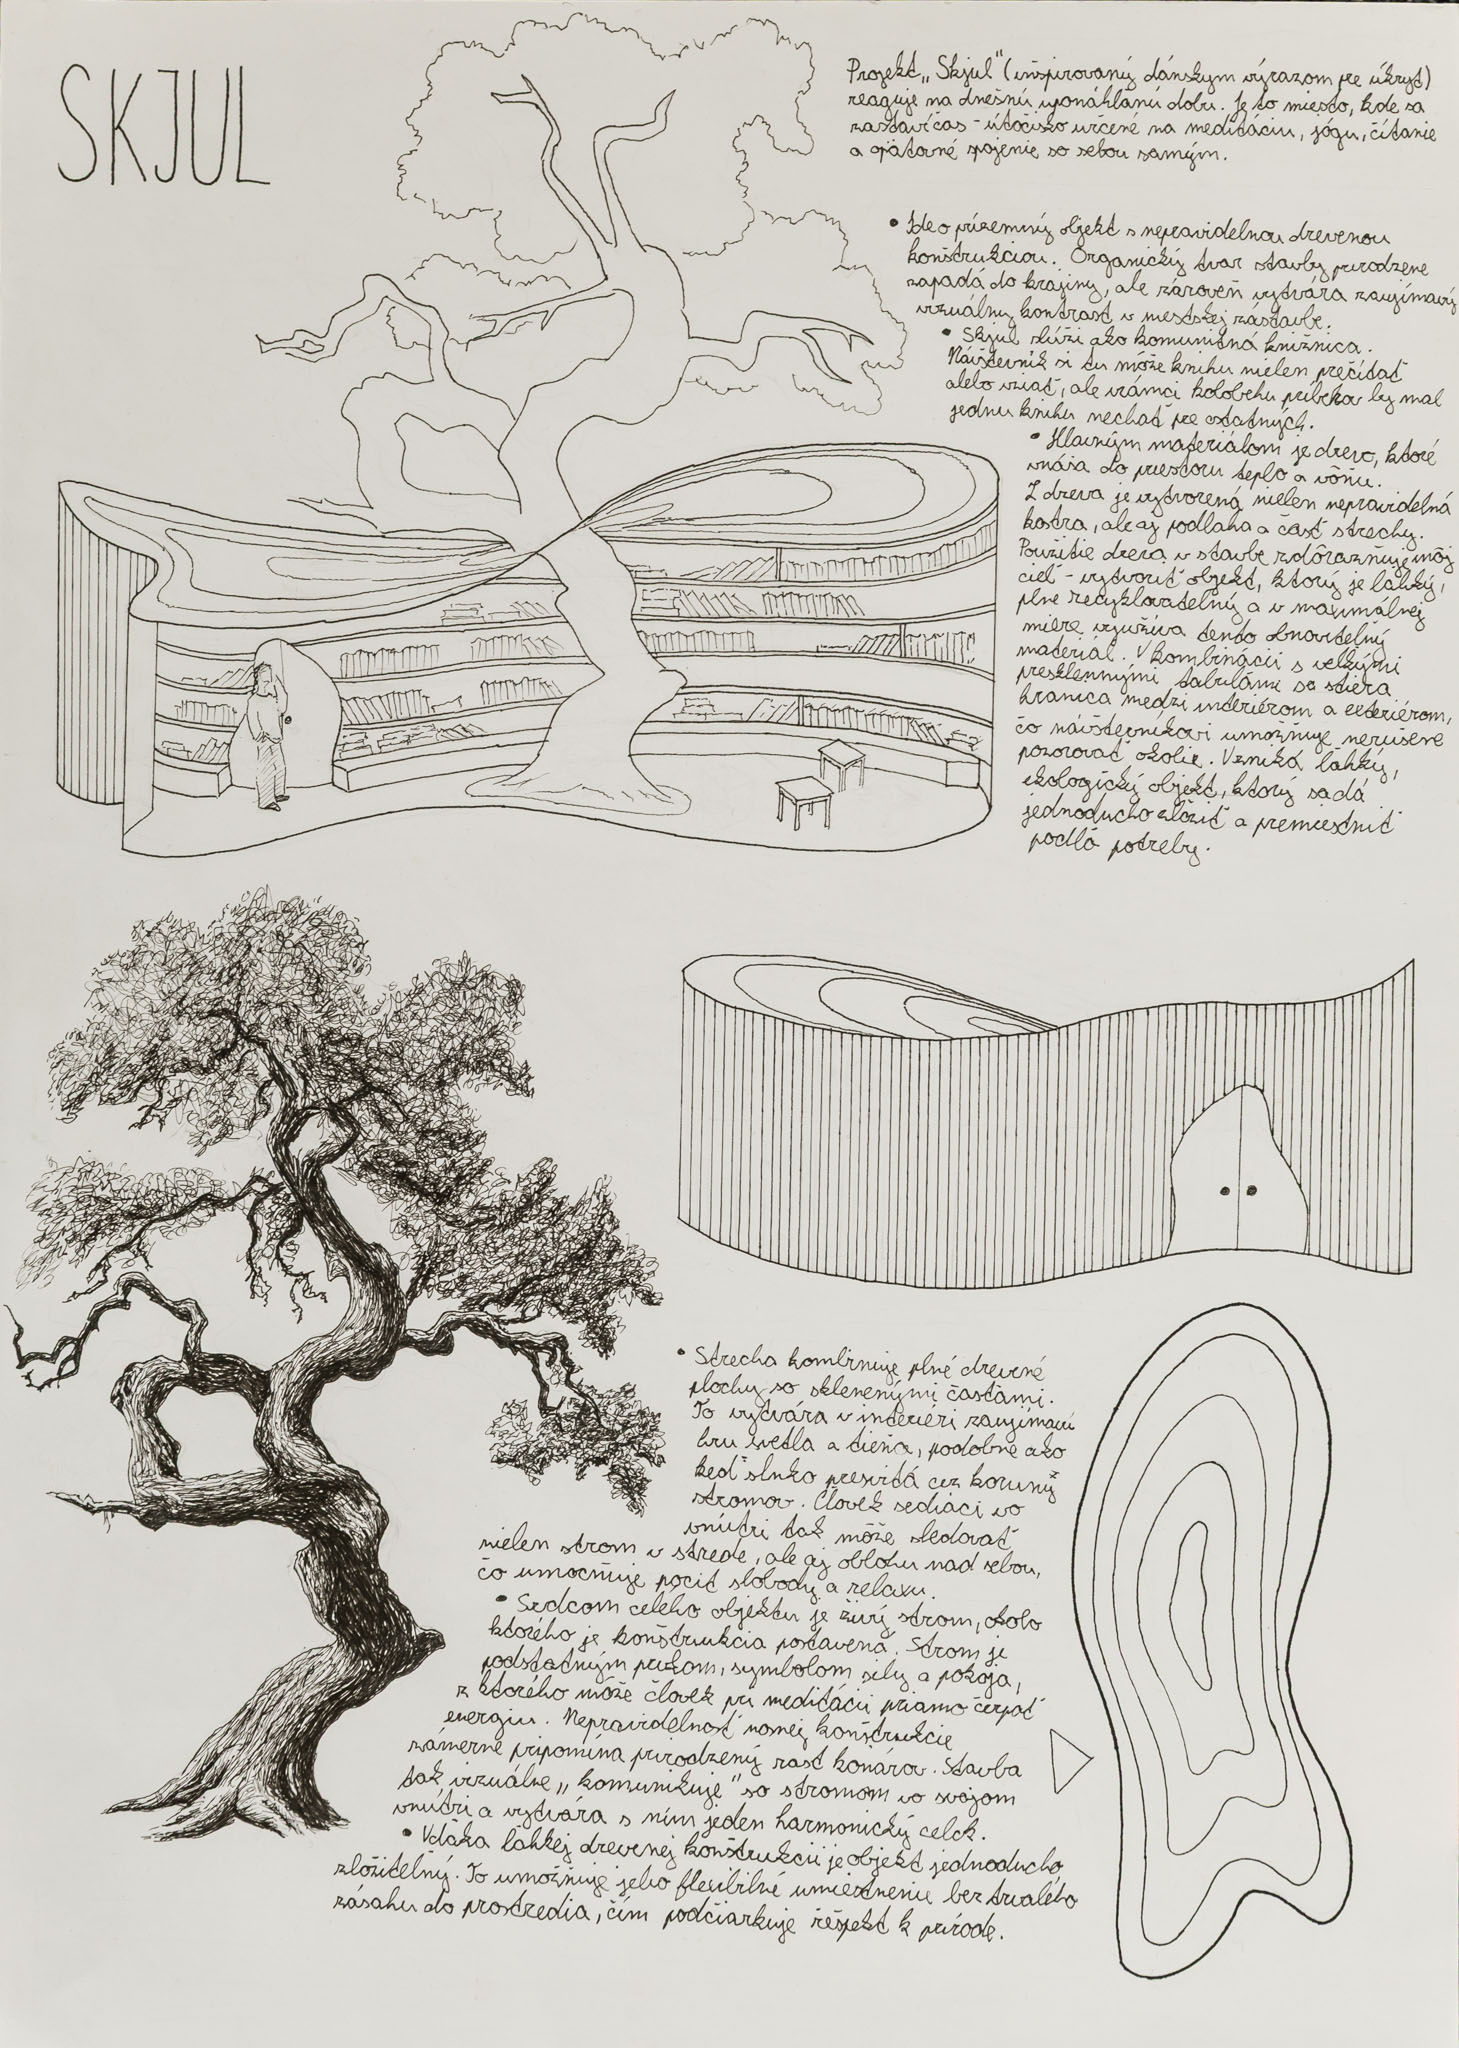 SKJUL
Projekt „Skjul" (inšpirovaný dánskym výrazom pre úkryt)
reaguje na dnešnú uponáhľanú dobu. Je to miesto, kde sa
zastaví čas - útočisko určené na meditáciu, jógu, čítanie
a opätovné spojenie so sebou samým.
• Ide o prízemný objekt s nepravidelnou drevenou
konštrukciou. Organický tvar stavby prirodzene
zapadá do krajiny, ale zároveň vytvára zaujímavý
vizuálny kontrast v mestskej zástavbe.
• Skjul slúži ako komunitná knižnica.
Návštevník si tu môže knihu nielen prečítať
alebo vziať, ale v rámci kolobehu príbehov by mal
jednu knihu nechať pre ostatných.
• Hlavným materiálom je drevo, ktoré
vnáša do priestoru teplo a vôňu.
Z dreva je vytvorená nielen nepravidelná
kostra, ale aj podlaha a časť strechy.
Použitie dreva v stavbe zdôrazňuje môj
cieľ - vytvoriť objekt, ktorý je ľahký,
plne recyklovateľný a v maximálnej
miere využíva tento obnoviteľný
materiál. V kombinácii s veľkými
presklennými tabuľami sa stiera
hranica medzi interiérom a exteriérom,
čo návštevníkovi umožňuje nerušene
pozorovať okolie. Vzniká ľahký,
ekologický objekt, ktorý sa dá
jednoducho zložiť a premiestniť
podľa potreby.
• Strecha kombinuje plné drevené
plochy so sklenenými časťami.
To vytvára v interiéri zaujímavú
hru svetla a tieňa, podobne ako
keď slnko presvitá cez koruny
stromov. Človek sediaci vo
vnútri tak môže sledovať
nielen strom v strede, ale aj oblohu nad sebou,
čo umocňuje pocit slobody a relaxu.
• Srdcom celého objektu je živý strom, okolo
ktorého je konštrukcia postavená. Strom je
podstatným prvkom, symbolom sily a pokoja,
z ktorého môže človek pri meditácii priamo čerpať
energiu. Nepravidelnosť nosnej konštrukcie
zámerne pripomína prirodzený rast konárov. Stavba
tak vizuálne „komunikuje" so stromom vo svojom
vnútri a vytvára s ním jeden harmonický celok.
• Vďaka ľahkej drevenej konštrukcii je objekt jednoducho
zložiteľný. To umožňuje jeho flexibilné umiestnenie bez trvalého
zásahu do prostredia, čím podčiarkuje rešpekt k prírode.